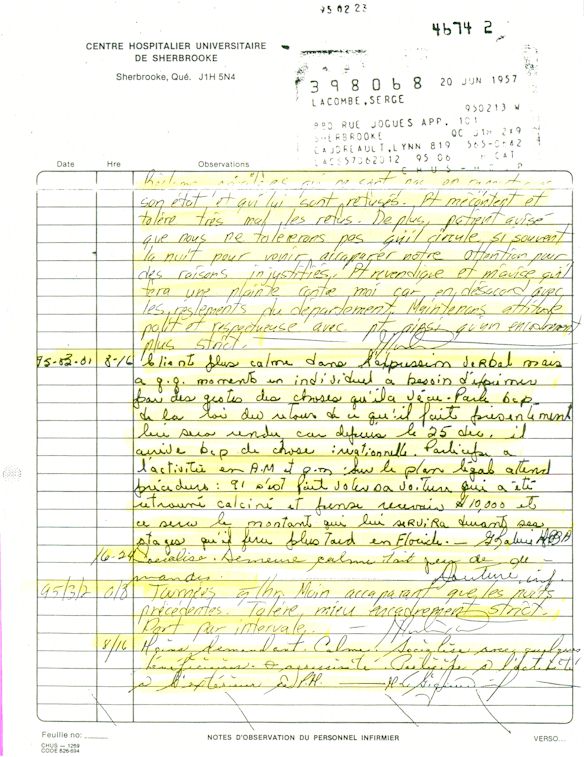 95 02 23
4674 2
CENTRE HOSPITALIER UNIVERSITAIRE
DE SHERBROOKE
Sherbrooke, Qué. J1H 5N4
398068 20 JUN 1957
LACOMBE, SERGE
950213 W
880 RUE JOGUES APP. 101
SHERBROOKE QC J1H 2X9
GAUDREAULT, LYNN 819 565-0642
LACS57062012 95 06 CAT
CHUS
Date Hre Observations
son état, et qui lui sont refusés. Pt mécontent et
tolère très mal les refus. De plus, patient avisé
que nous ne tolèrerons pas qu'il circule si souvent
la nuit pour venir accaparer notre attention pour
des raisons injustifiés. Pt revendique et m'avise qu'il
fera une plainte contre moi car en désaccord avec
les règlements du département. Maintenons attitude
polit et respectueuse avec pt ainsi qu'un encadrement
plus strict.
95-03-01 8-16 Client plus calme dans l'expression verbal mais
a q.q. moments un individuel a besoin d'exprimer
par des gestes des choses qu'il a vécu. Parle bcp
de la loi du retour de ce qu'il fait présentement
lui sera rendu car depuis le 25 déc. il
arrive bcp de chose irrationnelle. Participe a
l'activités en A.M et p.m. Sur le plan légal attend
procédure : 91 s'est fait voler sa voiture qui a été
retrouvé calciné et pense recevoir $10,000 et
ce sera le montant qui lui servira durant ses
stages qu'il fera plus tard en Floride.
16-24 Socialise. Demeure calme. Fait peu de de-
mandes. inf.
95/3/2 0/8 Tournées q 1hr. Moin accaparant que les nuits
précédentes. Tolère mieu encadrement strict.
Dort par intervale.
8/16 Moins demandant. Calme. Socialise avec quelques
bénéficiaires. agressivité. Participe à l'activité
à l'extérieur en P.M.
Feuille no:
CHUS — 1269
CODE 626 694
NOTES D'OBSERVATION DU PERSONNEL INFIRMIER
VERSO...